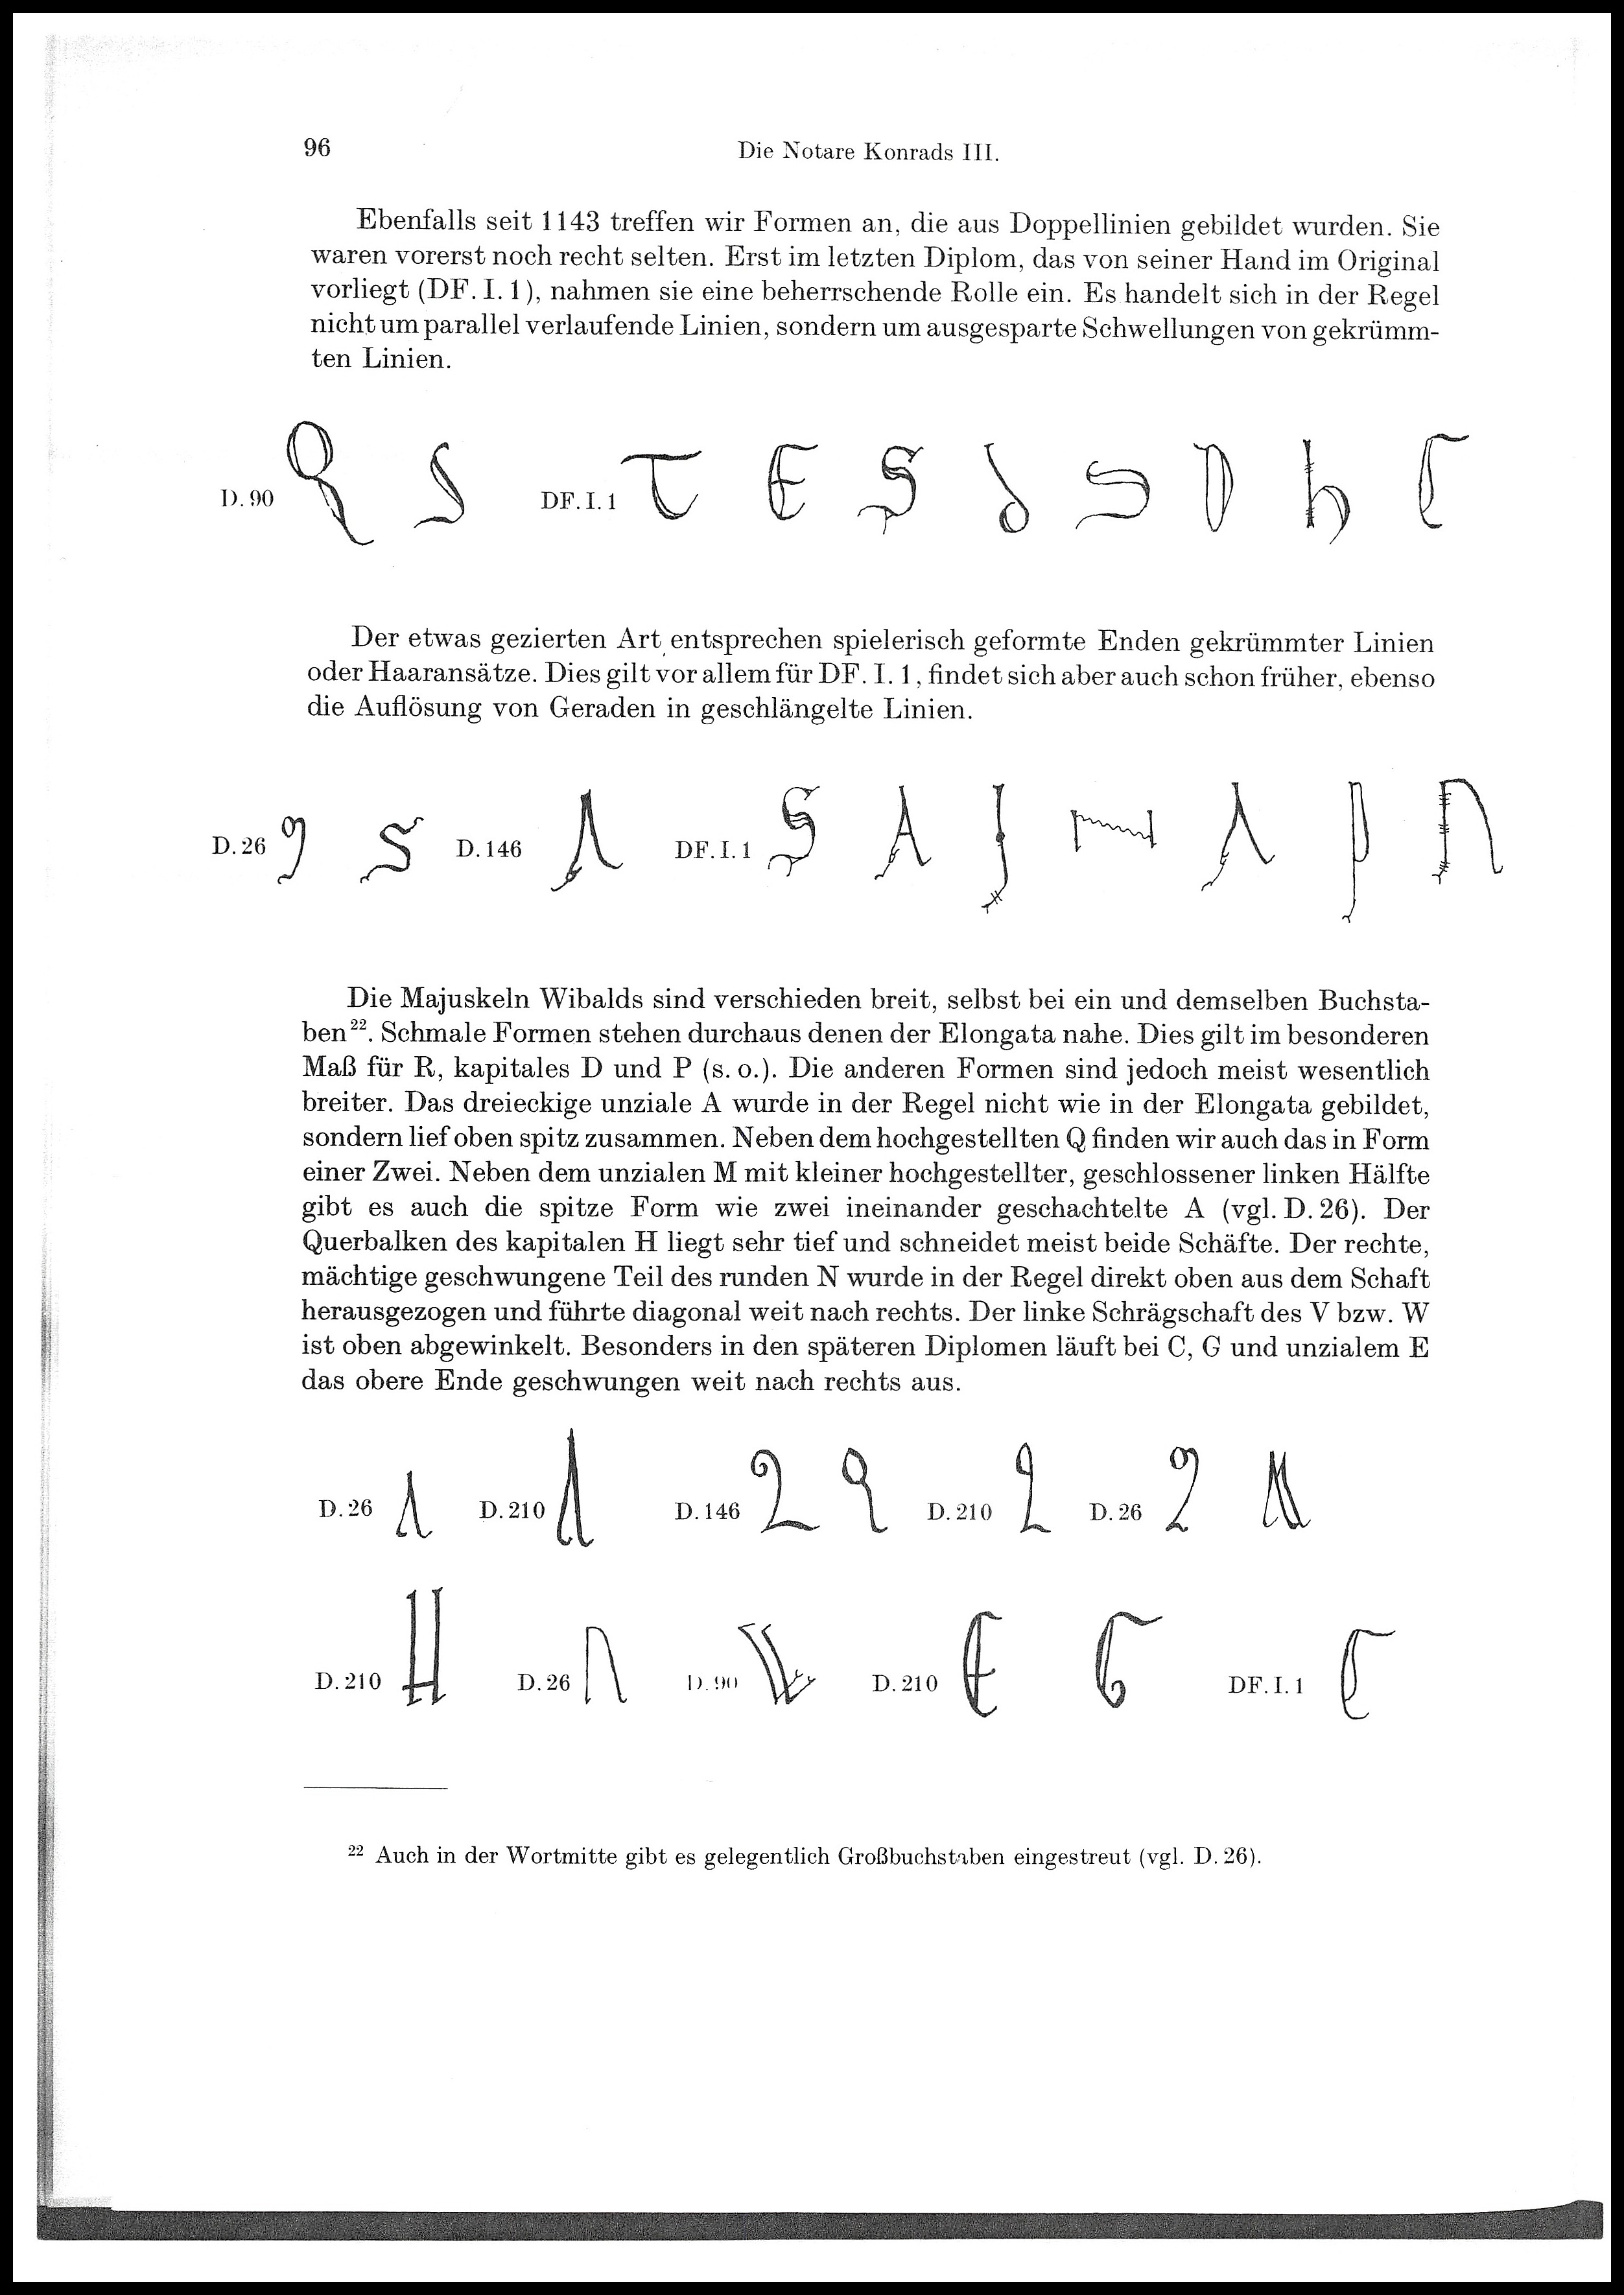 96 Die Notare Konrads III.
Ebenfalls seit 1143 treffen wir Formen an, die aus Doppellinien gebildet wurden. Sie
waren vorerst noch recht selten. Erst im letzten Diplom, das von seiner Hand im Original
vorliegt (DF. I. 1), nahmen sie eine beherrschende Rolle ein. Es handelt sich in der Regel
nicht um parallel verlaufende Linien, sondern um ausgesparte Schwellungen von gekrümm-
ten Linien.
D. 90 Q S DF. I. 1 T E S d S D h C
Der etwas gezierten Art entsprechen spielerisch geformte Enden gekrümmter Linien
oder Haaransätze. Dies gilt vor allem für DF. I. 1, findet sich aber auch schon früher, ebenso
die Auflösung von Geraden in geschlängelte Linien.
D. 26 S D. 146 A DF. I. 1 S A J A P N
Die Majuskeln Wibalds sind verschieden breit, selbst bei ein und demselben Buchsta-
ben²². Schmale Formen stehen durchaus denen der Elongata nahe. Dies gilt im besonderen
Maß für R, kapitales D und P (s. o.). Die anderen Formen sind jedoch meist wesentlich
breiter. Das dreieckige unziale A wurde in der Regel nicht wie in der Elongata gebildet,
sondern lief oben spitz zusammen. Neben dem hochgestellten Q finden wir auch das in Form
einer Zwei. Neben dem unzialen M mit kleiner hochgestellter, geschlossener linken Hälfte
gibt es auch die spitze Form wie zwei ineinander geschachtelte A (vgl. D. 26). Der
Querbalken des kapitalen H liegt sehr tief und schneidet meist beide Schäfte. Der rechte,
mächtige geschwungene Teil des runden N wurde in der Regel direkt oben aus dem Schaft
herausgezogen und führte diagonal weit nach rechts. Der linke Schrägschaft des V bzw. W
ist oben abgewinkelt. Besonders in den späteren Diplomen läuft bei C, G und unzialem E
das obere Ende geschwungen weit nach rechts aus.
D. 26 A D. 210 A D. 146 Q Q D. 210 Q D. 26 Q M
D. 210 H D. 26 N D. 90 W D. 210 E G DF. I. 1 C
²² Auch in der Wortmitte gibt es gelegentlich Großbuchstaben eingestreut (vgl. D. 26).